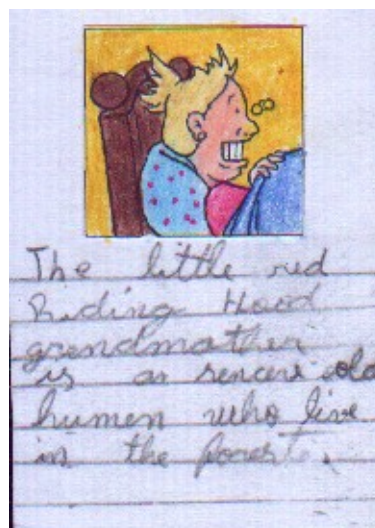 The little red
Riding Hood
grendmother
is an sencere old
humen who live
in the forest.